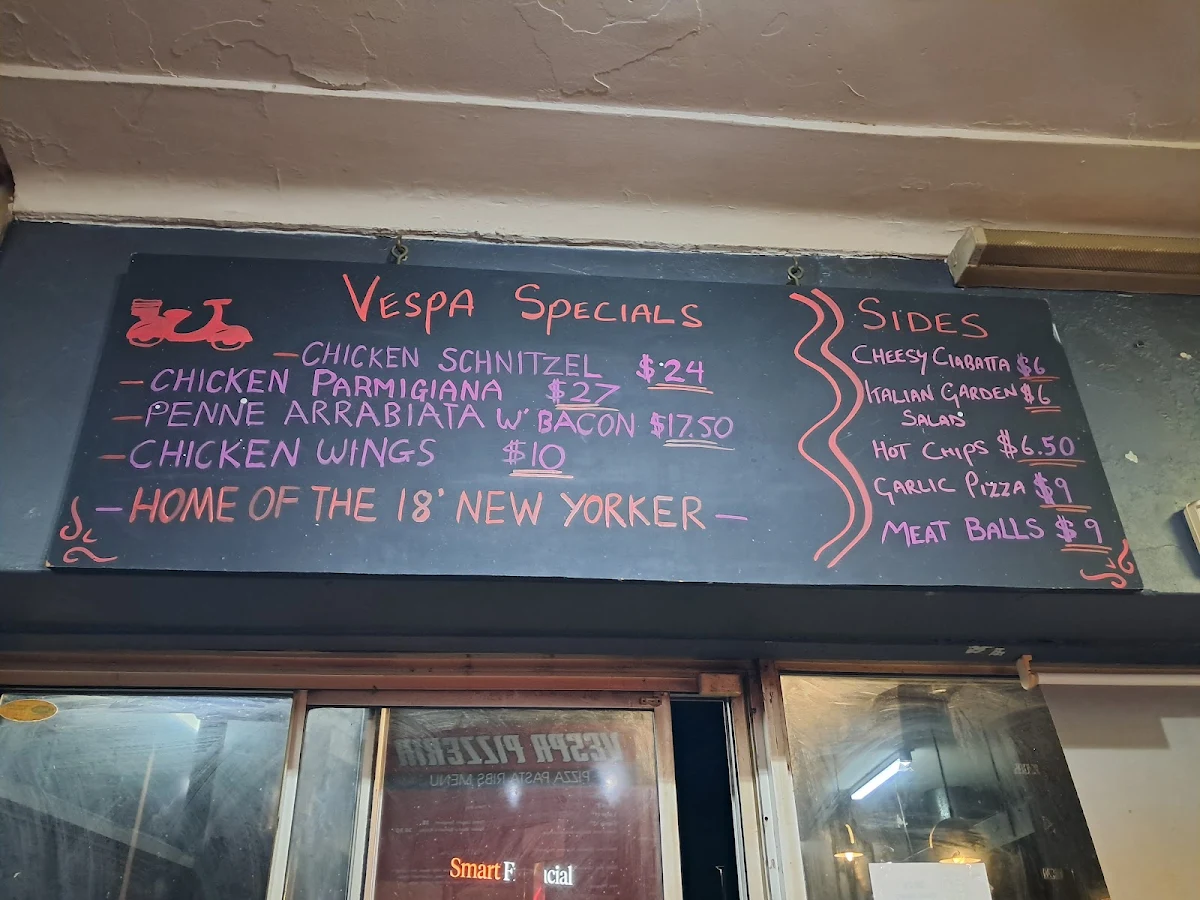 VESPA SPECIALS
- CHICKEN SCHNITZEL $24
- CHICKEN PARMIGIANA $27
- PENNE ARRABIATA W' BACON $17.50
- CHICKEN WINGS $10
- HOME OF THE 18' NEW YORKER -
SIDES
CHEESY CIABATTA $6
ITALIAN GARDEN $6
SALAD
HOT CHIPS $6.50
GARLIC PIZZA $9
MEAT BALLS $9
VESPA PIZZERIA
PIZZA PASTA RIBS MENU
Smart